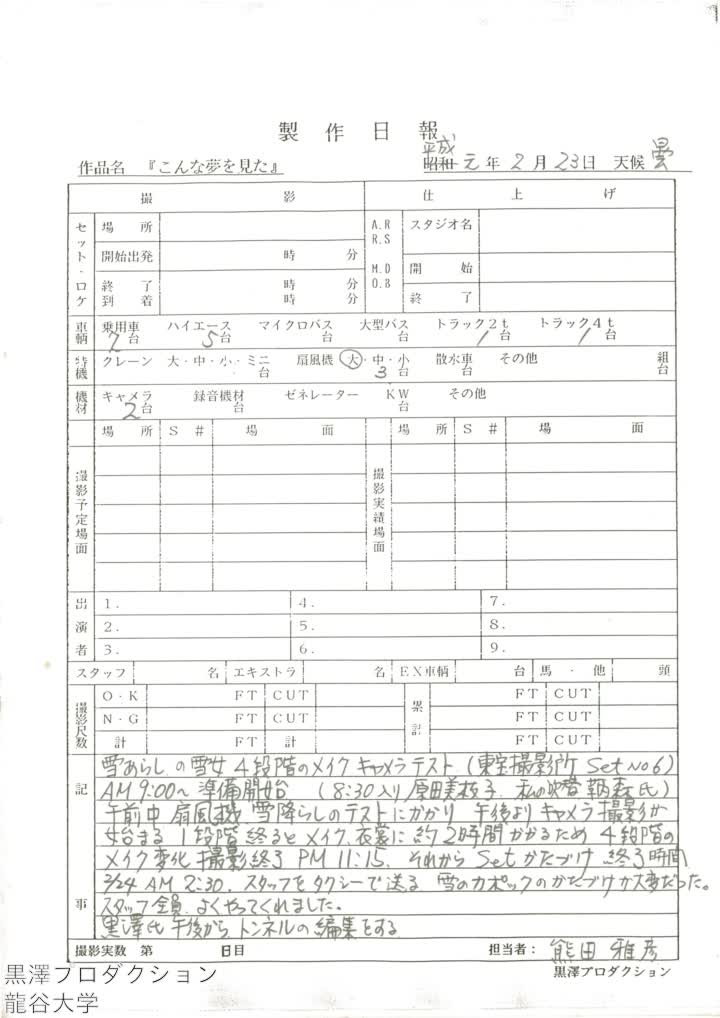 製作日報
作品名 『こんな夢を見た』 昭和 平成 元年 2月 23日 天候 曇
撮影 仕上げ
セット・ロケ 場所 A.R R.S スタジオ名
開始出発 時 分
M.D O.B 開始
終了 時 分
到着 時 分
終了
車輌 乗用車 7台 ハイエース 5台 マイクロバス 台 大型バス 台 トラック2t 1台 トラック4t 1台
特機 クレーン 大・中・小・ミニ 台 扇風機 大・中・小 3台 散水車 台 その他 組 台
機材 キャメラ 2台 録音機材 ゼネレーター KW 台 その他
場所 S# 場面 場所 S# 場面
撮影予定場面 撮影実績場面
出演者 1. 4. 7.
2. 5. 8.
3. 6. 9.
スタッフ 名 エキストラ 名 EX車輌 台 馬・他 頭
撮影尺数 O・K FT CUT 累計 FT CUT
N・G FT CUT FT CUT
計 FT 計 FT CUT
記事
雪あらしの雪女 4段階のメイク キャメラテスト (東宝撮影所 Set No6)
AM 9:00〜 準備開始 (8:30入り 原田美枝子、私の映替 氏)
午前中 扇風機、雪降らしのテストにかかり 午後よりキャメラ撮影が
始まる 1段階終るとメイク、衣裳に約2時間かかるため 4段階の
メイク変化 撮影終了 PM 11:15. それから Setかたづけ 終了時間
2/24 AM 2:30. スタッフをタクシーで送る 雪のカポックのかたづけが大変だった。
スタッフ全員、よくやってくれました。
黒澤氏 午後から トンネルの編集をする
撮影実数 第 日目 担当者: 熊田 雅彦
黒澤プロダクション
黒澤プロダクション
龍谷大学